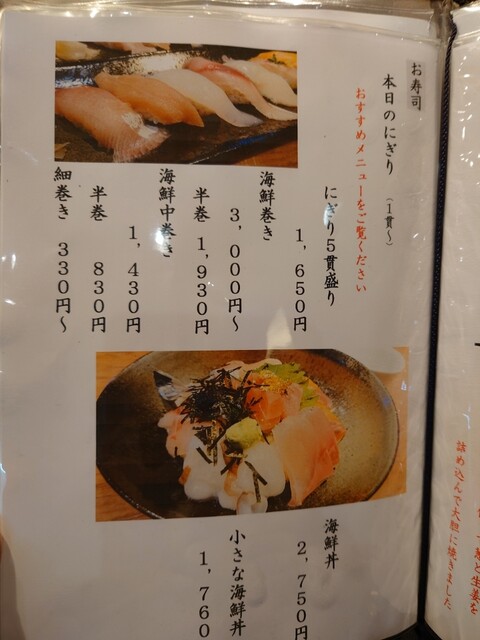 お寿司
本日のにぎり（1貫〜）
おすすめメニューをご覧ください
にぎり5貫盛り
1,650円
海鮮巻き
3,000円〜
半巻 1,930円
海鮮中巻き
1,430円
半巻 830円
細巻き 330円〜
海鮮丼
2,750円
小さな海鮮丼
1,760
と生姜を
詰め込んで大胆に焼きました